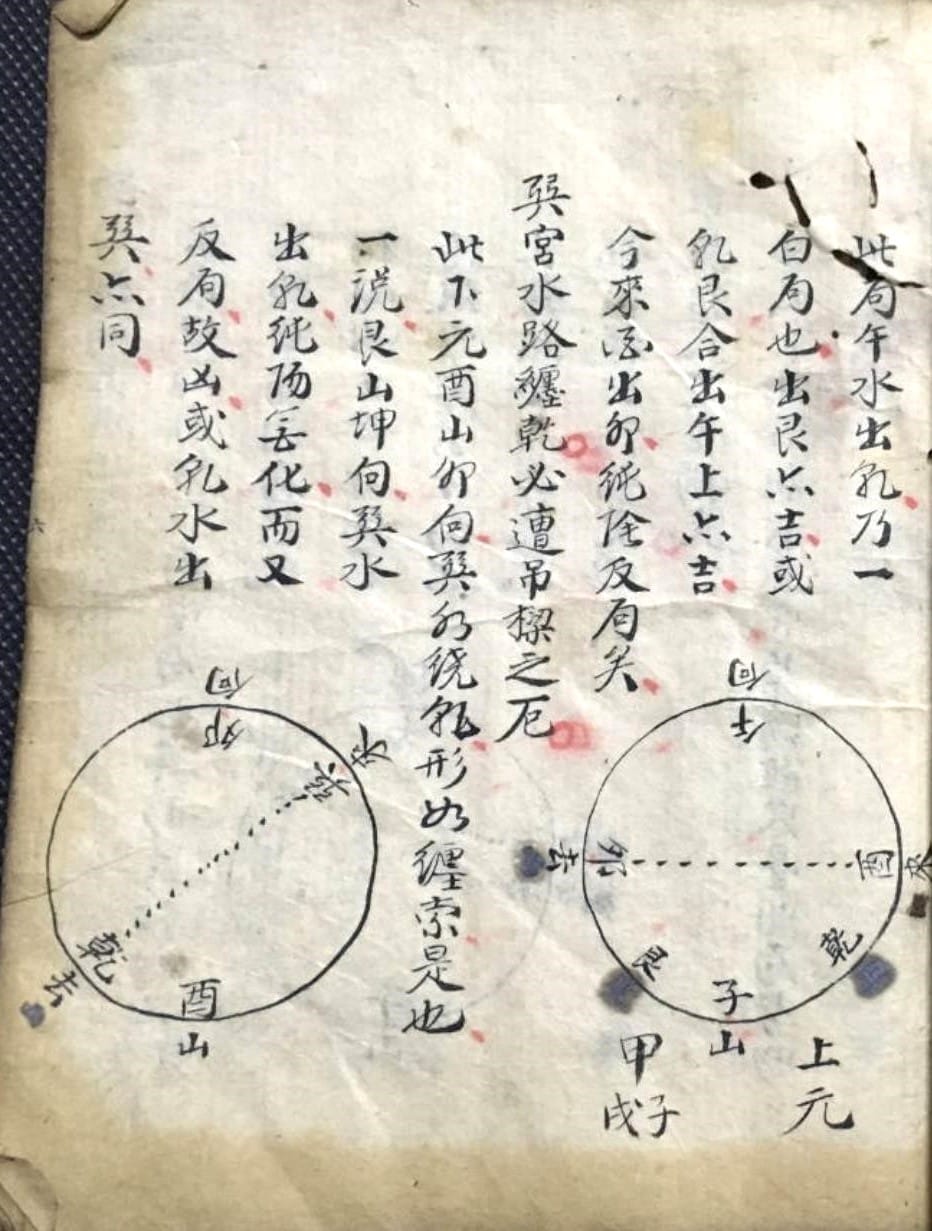 此局午水出乹乃一
白局也出艮亦吉或
乹艮合出午上亦吉
今來酉出卯純陰反局矣
巽宮水路纏乾必遭吊樑之厄
此下元酉山卯向巽水繞乹形如纏索是也
一說艮山坤向巽水
出乹純陽無化而又
反局故凶或乹水出
巽亦同
向
午
去
卯
酉
來
艮
乾
子
山
上元
甲子
戌
向
卯
水
巽
乾
去
酉
山